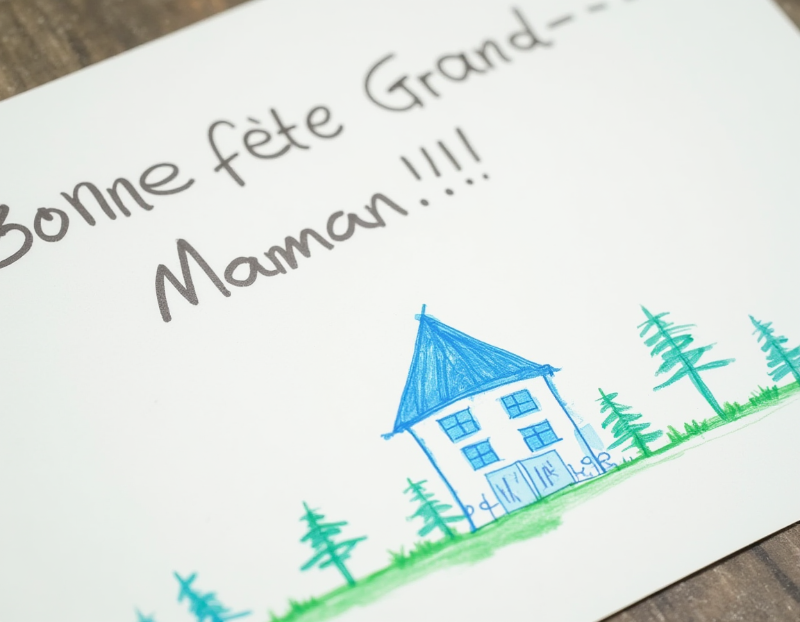 Bonne fête Grand---
Maman!!!!